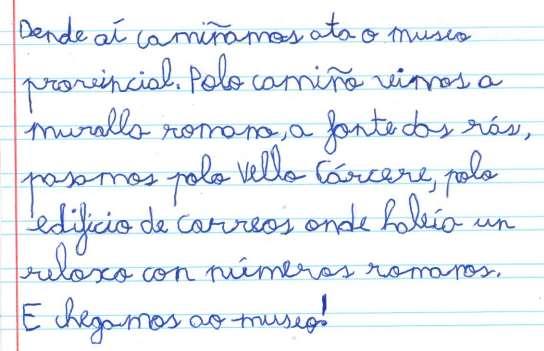 Dende aí camiñamos ata o museo
provincial. Polo camiño vimos a
muralla romana, a fonte das rás,
pasamos pola vella Cárcere, polo
edificio de correos onde había un
reloxo con números romanos.
E chegamos ao museo!